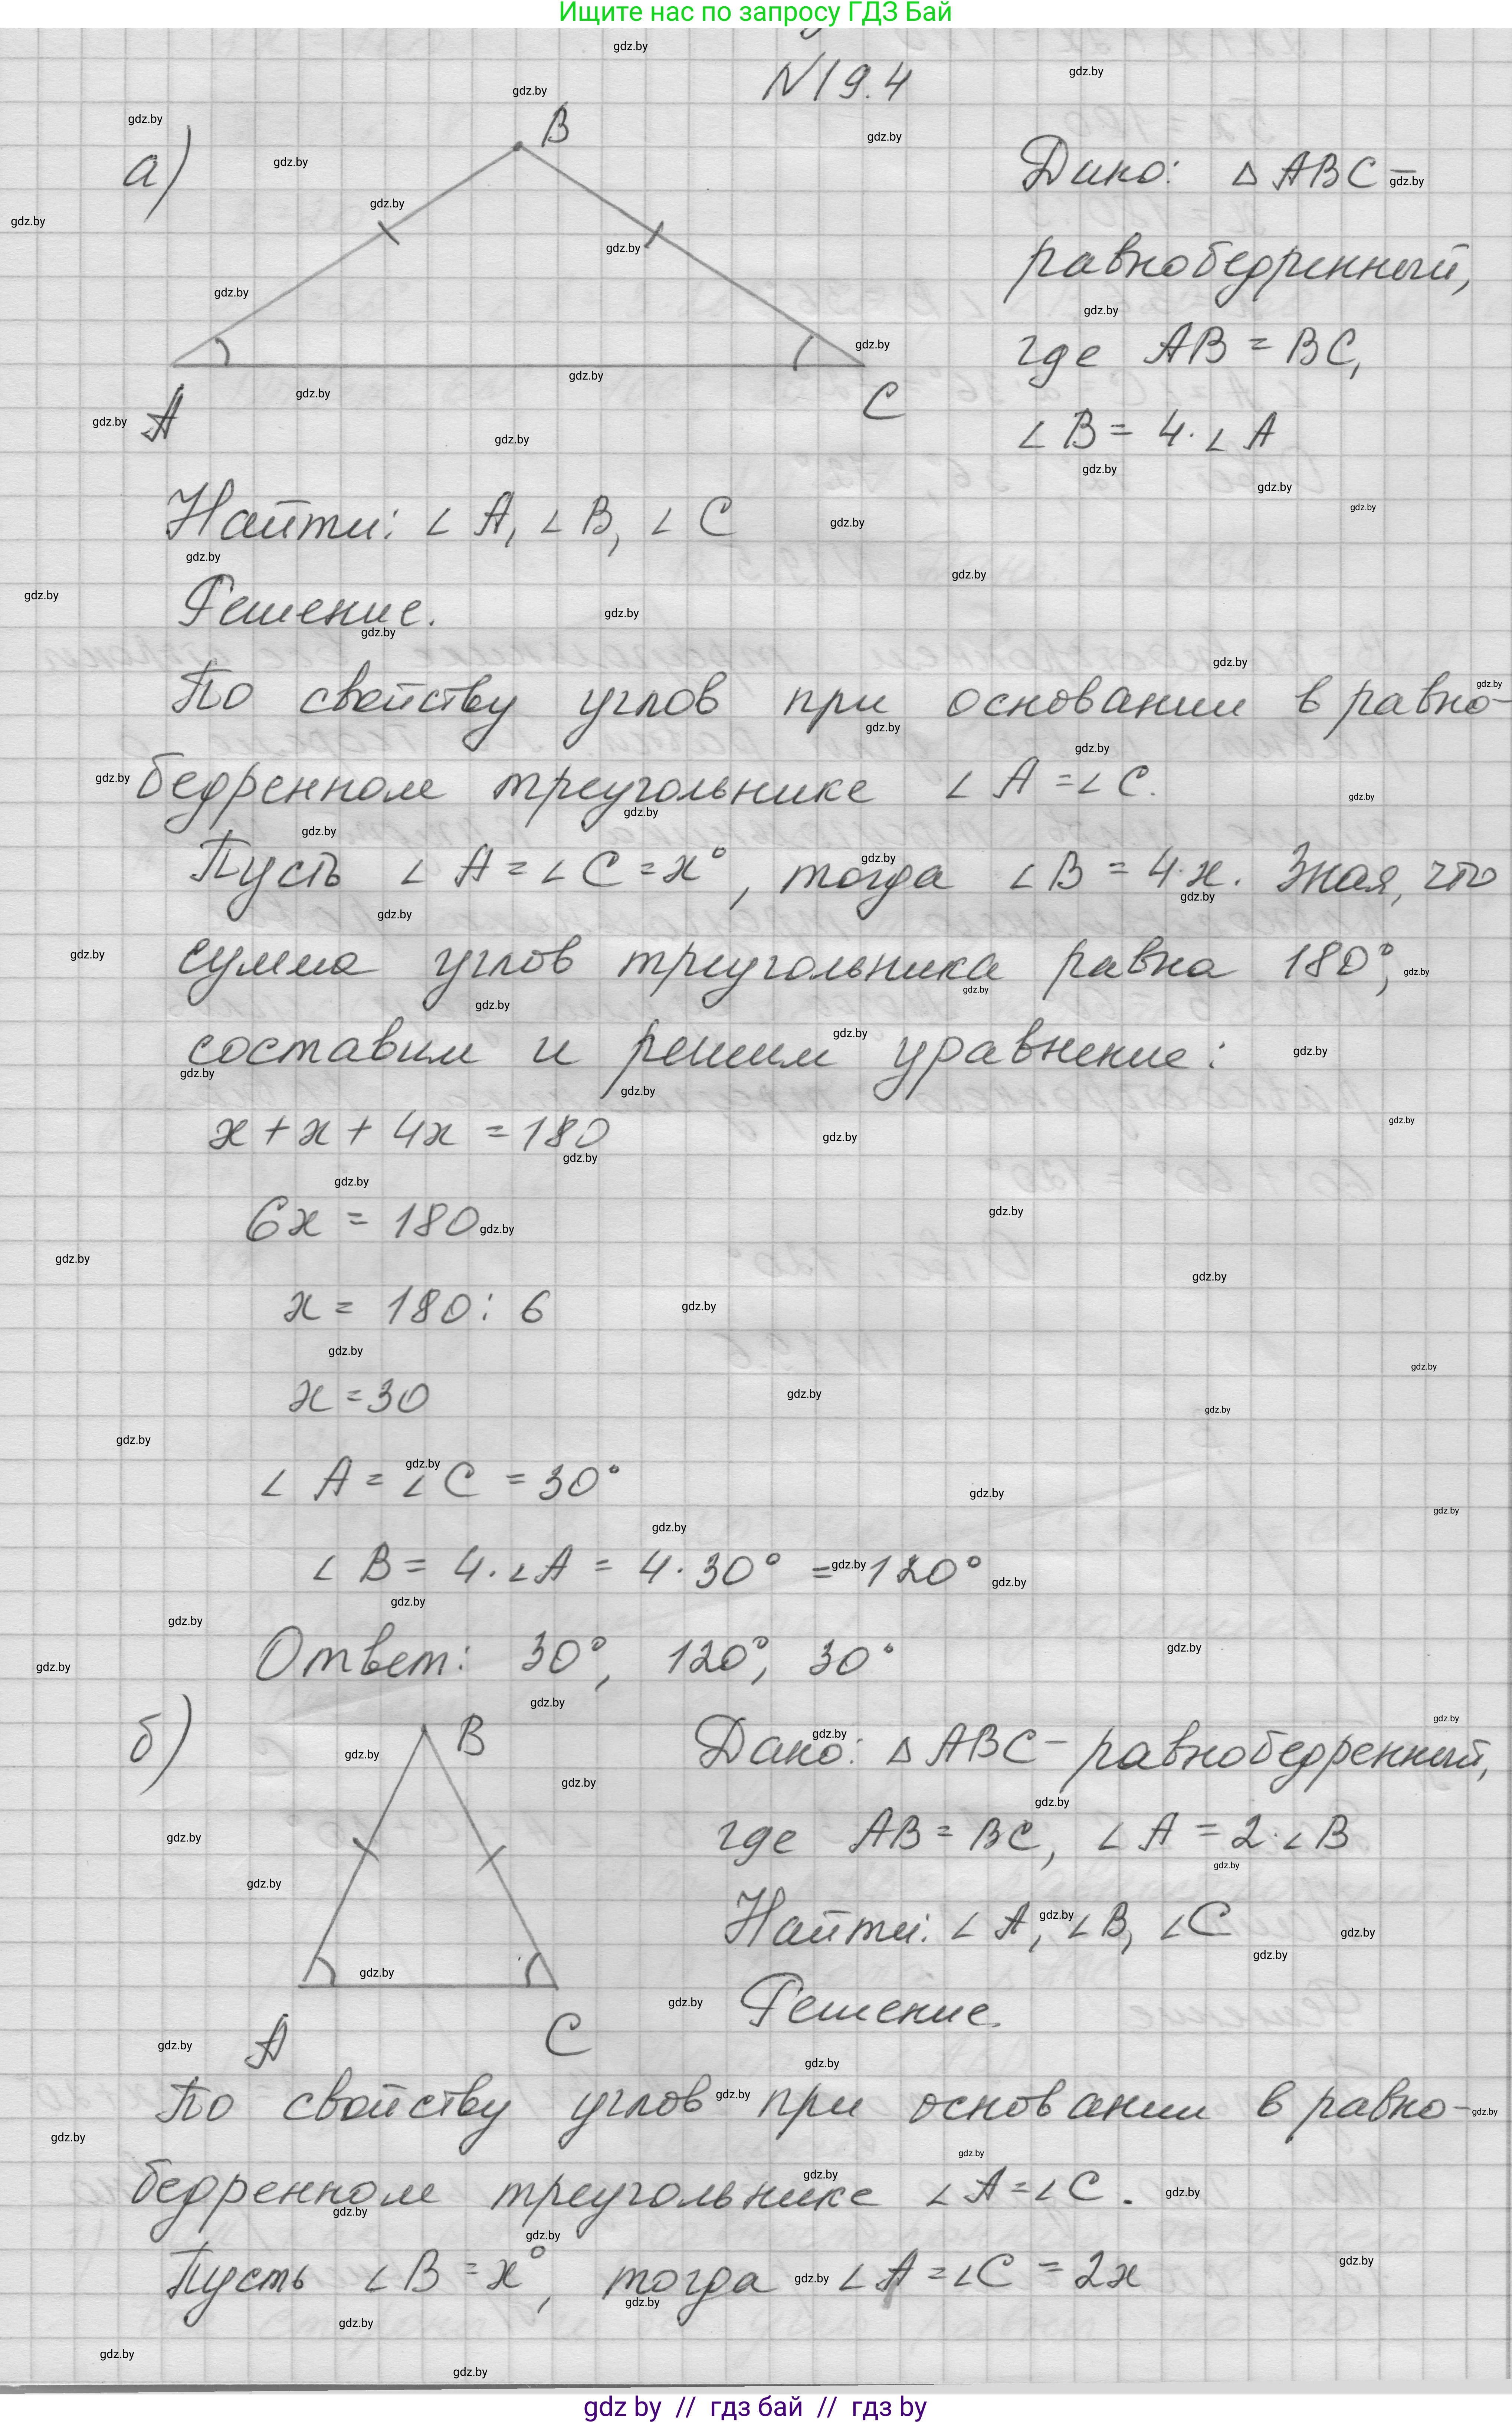 Ищите нас по запросу ГДЗ Бай
N19.4
а)
B
A
C
Дано: △ABC –
равнобедренный,
где AB = BC,
∠B = 4·∠A
Найти: ∠A, ∠B, ∠C
Решение.
По свойству углов при основании в равно-
бедренном треугольнике ∠A = ∠C.
Пусть ∠A = ∠C = x°, тогда ∠B = 4·x. Зная, что
сумма углов треугольника равна 180°,
составим и решим уравнение:
x + x + 4x = 180
6x = 180
x = 180 : 6
x = 30
∠A = ∠C = 30°
∠B = 4·∠A = 4·30° = 120°
Ответ: 30°, 120°, 30°
б)
B
A
C
Дано: △ABC – равнобедренный,
где AB = BC, ∠A = 2·∠B
Найти: ∠A, ∠B, ∠C
Решение.
По свойству углов при основании в равно-
бедренном треугольнике ∠A = ∠C.
Пусть ∠B = x°, тогда ∠A = ∠C = 2x
gdz by // гдз бай // гдз by